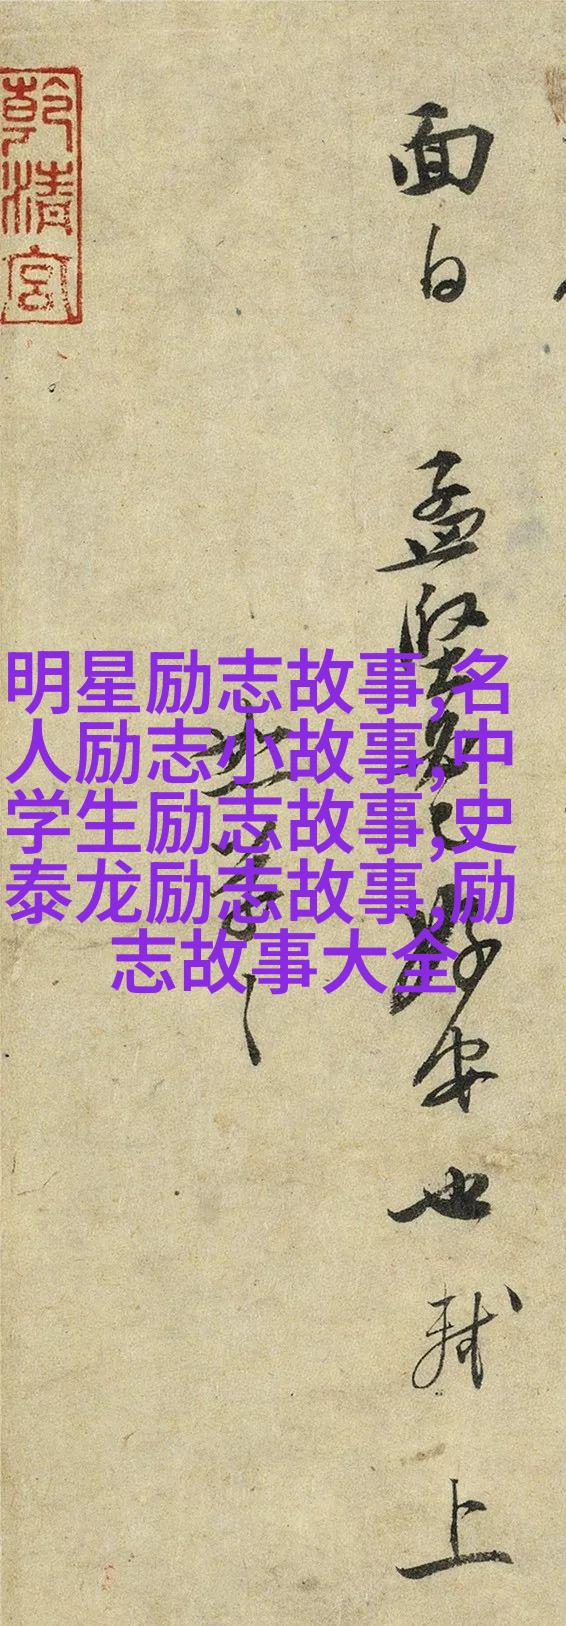 面白
孟坚爱已好安也轼上
乾清宫
明星励志故事,名
人励志小故事,中
学生励志故事,史
泰龙励志故事,励
志故事大全